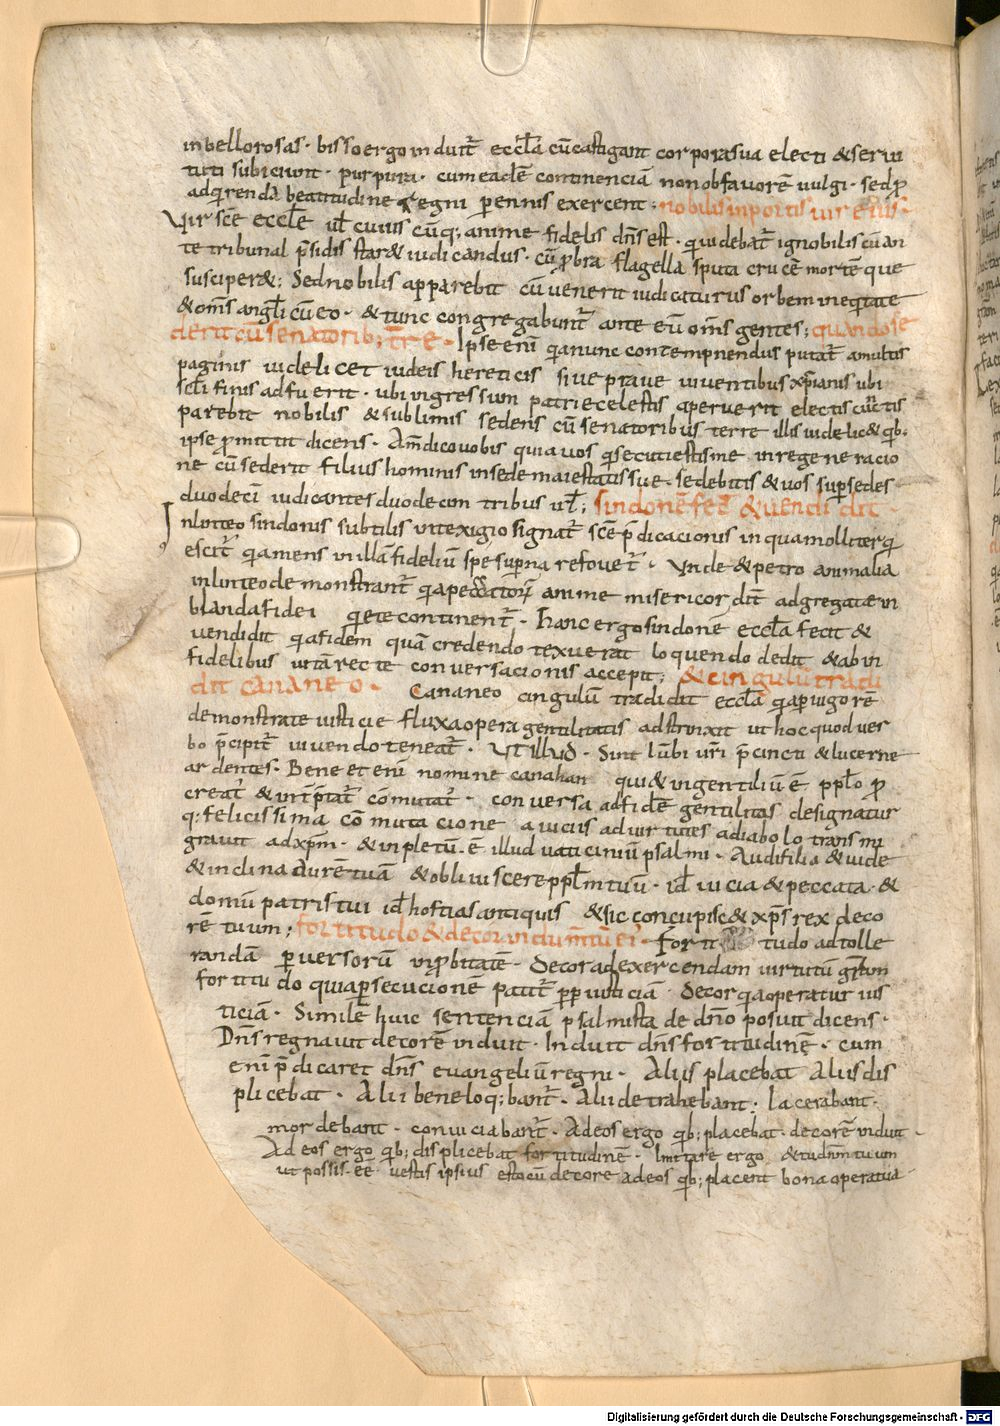 inbellorosas· bisso ergo induit̄ ecc̄la cū castigant corpora sua electi & servi
tuti subiciunt· purpura· cum eadē continenciā non ob favorē vulgi· sed p̄
adq̄renda beatitudine & regni perennis exercent; nobilis in portis vir eius·
Vir sc̄e eccl̄e ul̄ cuius cūq; anime fidelis dn̄s est· qui debat̄ ignobilis cū an
te tribunal p̄sidis star& iudicandus· cū p̄bra flagella sputa crucē morte que
susciper&; Sed nobilis apparebit cū venerit iudicaturus orbem in eq̄tate
& om̄s angl̄i cū eo· & tunc congregabunt̄ ante eū om̄s gentes; quando se
derit cū senatorib; tr̄e· Ipse enī q̄a nunc contempnendus putat̄ a multis
paginis videlicet iudeis hereticis sive prave viventibus xp̄ianis ubi
scl̄i finis adfuerit· ubi ingressum patrie celestis aperuerit electis cūctis
parebit nobilis & sublimis sedens cū senatoribus terre illis videlic& q̄b;
ipse p̄mittit dicens· Am̄ dico vobis quia vos q̄ secuti estis me in regeneracio
ne cū sederit filius hominis in sede maiestatis sue· sedebitis & vos sup̄ sedes
duodeci iudicantes duodecim tribus isrl̄; sindonē fec̄ & vendidit·
In linteo sindonis subtilis intexigio signat̄ sc̄e p̄dicacionis in qua molliter q̄
escit̄ q̄a mens in illa fideliū spe superna refovet̄· Unde & petro animalia
in linteo demonstrant̄ q̄a peccatorū anime misericordit̄ adgregatae in
blanda fidei q̄ete continent̄· Hanc ergo sindonē eccl̄a fecit &
vendidit q̄a fidem quā credendo texuerat loquendo dedit & ab in
fidelibus vitā recte conversacionis accepit; & cingulū tradi
dit cananeo· Cananeo cingulū tradidit eccl̄a q̄a p̄ vigorē
demonstrate iusticie fluxa opera gentilitatis adstrinxit ut hoc quod ver
bo p̄cipit̄ vivendo teneat̄· Ut illud· Sint lūbi vr̄i p̄cincti & lucerne
ardentes· Bene etenī nomine canahan qui & in gentiliū ē pp̄lo p̄
creat̄ & int̄p̄tat̄ cōmutat̄· conversa ad fidē gentilitas designatur
q; felicissima cōmutacione a viciis ad virtutes a diabolo transmi
gravit ad xp̄m· & inpletū ē illud vaticiniū psalmi· Audi filia & vide
& inclina aurē tuā & obliviscere pp̄lm tuū· id̄ vicia & peccata· &
domū patris tui id̄ hostias antiquis & sic concupisc& xp̄s rex deco
rē tuum; fortitudo & decor indum̄tū ei· Fortitudo ad tolle
randā perversorū inp̄bitatē· decor ad exercendam virtutū gr̄tiam
fortitudo quia p̄secucione patit̄ p̄p̄ iusticiā· Decor q̄a operatur ius
ticiā· Similē huic sentenciā psalmista de dn̄o posuit dicens·
Dn̄s regnavit decorē induit· Induit dn̄s fortitudinē· cum
enī p̄dicaret dn̄s evangeliū regni· Aliis placebat aliis dis
plicebat· Alii bene loq;bant̄· Alii detrahebant· lacerabant·
mordebant· conviciabant̄· Ad eos ergo q̄b; placebat· decorē induit·
Ad eos ergo q̄b; displicebat fortitudinē· Imitare ergo & tu dn̄m tuum
ut possis ēē vestis ipsius esto cū decore ad eos q̄b; placent bona opera tua·
Digitalisierung gefördert durch die Deutsche Forschungsgemeinschaft - DFG